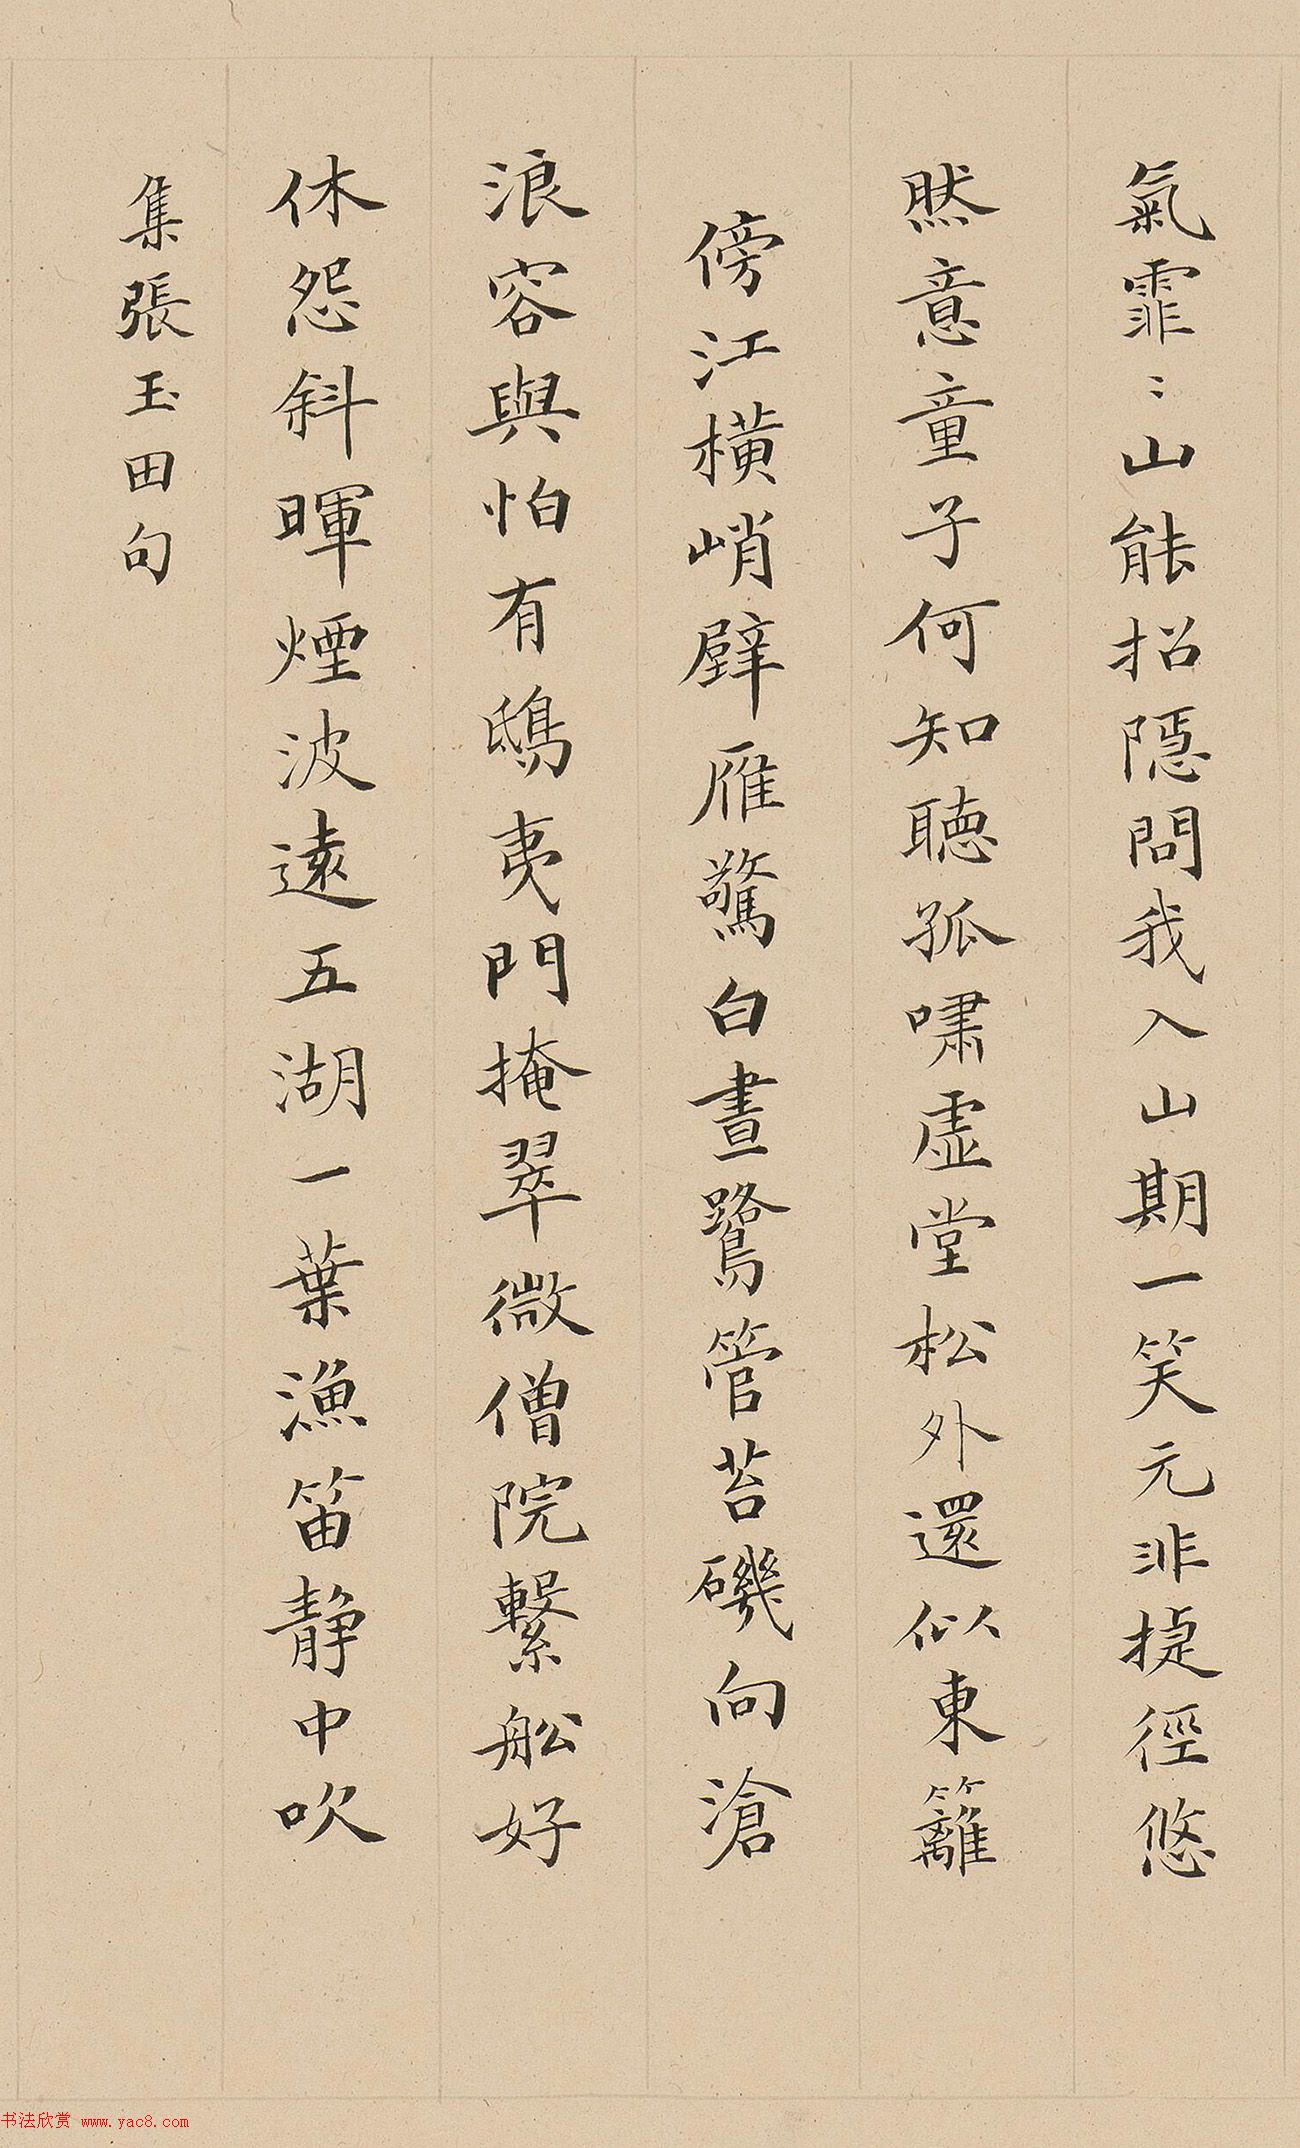 氣霏〻山能招隱問我入山期一笑元非捷徑悠
然意童子何知聽孤嘯虛堂松外還似東籬
傍江橫峭壁雁驚白晝鷺管苔磯向滄
浪容與怕有鴟夷門掩翠微僧院繫船好
休怨斜暉煙波遠五湖一葉漁笛靜中吹
集張玉田句
书法欣赏 www.yac8.com